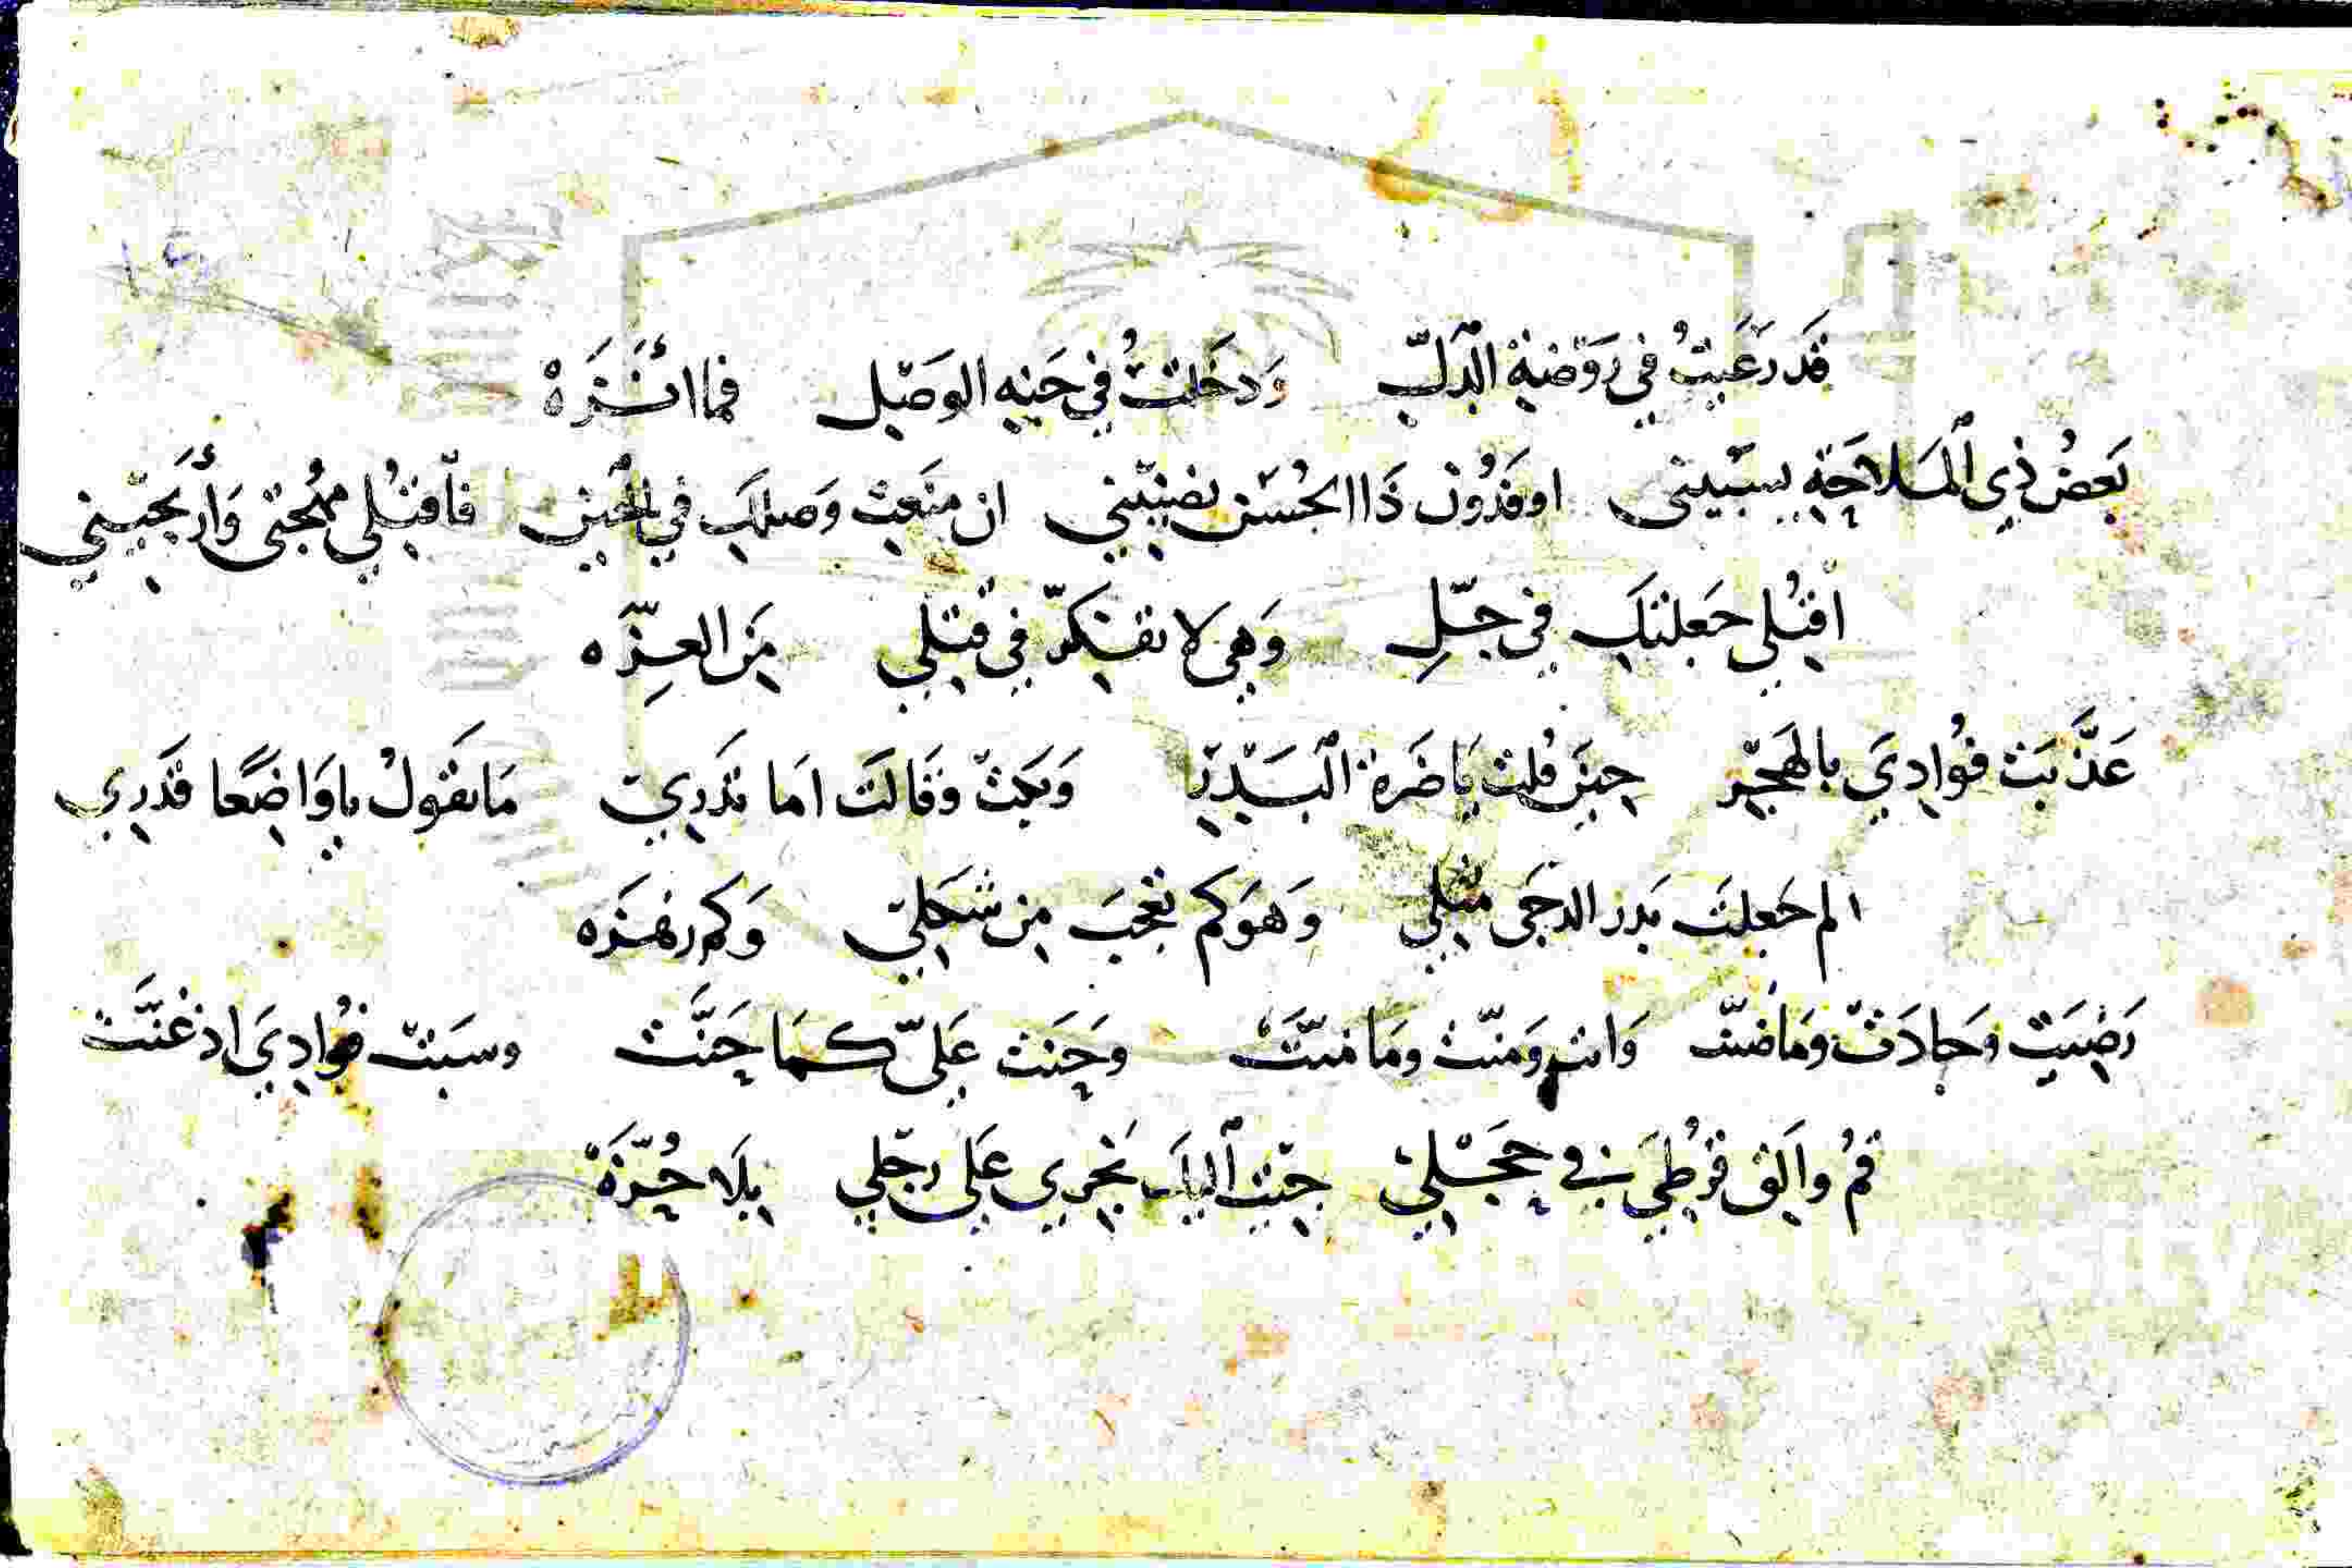 قَد رَعَيتُ في رَوْضَةِ الدَلّ وَدخَلتُ في جَنةِ الوَصْلِ فما أَنْزَهْ
بَعضُ ذِي المَلاحَةِ يسبيني او قدُون ذَا الحُسْن يضنيني ان منَعت وَصلك في الحين فأقتُلي مُهجتي وَأَريحيني
اقتُلي جَعلتكِ في حِلّ وَهي لا تفتكرّ في قتلي مَن العِزّه
عَذَّبَت فُوادِيَ بالهَجْر حينَ قُلت يا ضَرةَ البَدْر وَبكت وَقَالَت امَا تَدَرِي مَا تقولُ يا وَاضِعًا قَدَري
الم جَعلتَ بَدر الدجَى مثلي وَهوَ كم تعجبَ من شكلي وَكم
رَضيَت وَجادَت وَما ضنّت وَانت وَمَنّت ومَا منّتَ وَحَنَت عَليّ كمَا حَنَّت وسبَت فُوادِيَ اذ غنَّت
قمُ وألق قرُطيَ في حجْلي جيت الباب تجري على رجْلي بلَا حُزّة